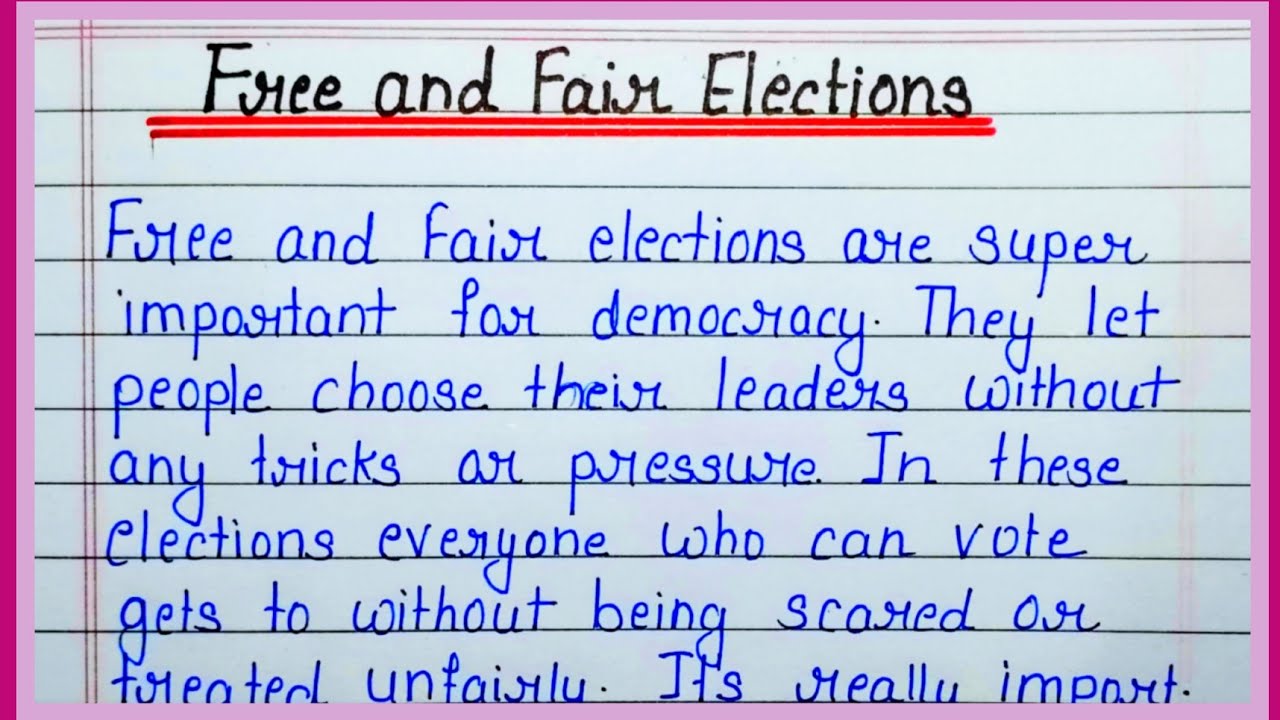 Free and Fair Elections
Free and Fair elections are super
important for democracy. They let
people choose their leaders without
any tricks or pressure. In these
elections everyone who can vote
gets to without being scared or
treated unfairly. It's really import.